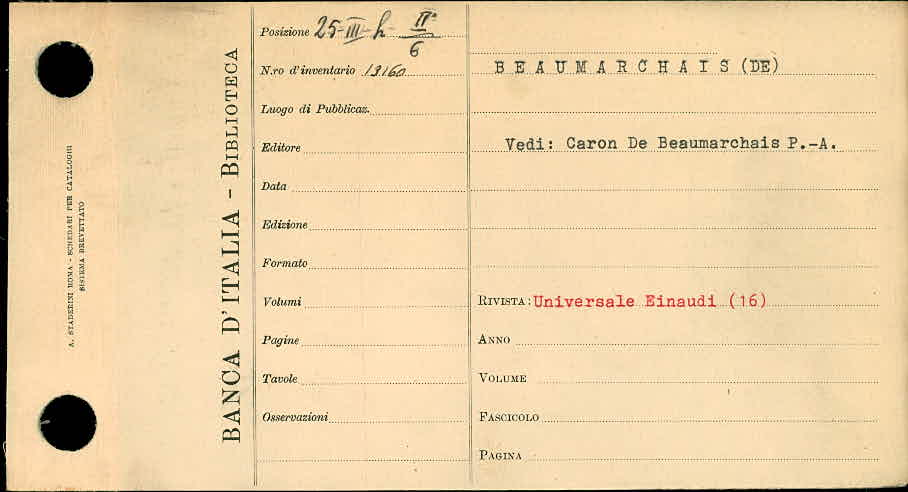 A. STADERINI ROMA - SCHEDARI PER CATALOGHI
SISTEMA BREVETTATO
BANCA D'ITALIA - BIBLIOTECA
Posizione 25-III-h IIª/6
N.ro d'inventario 13160
Luogo di Pubblicaz.
Editore
Data
Edizione
Formato
Volumi
Pagine
Tavole
Osservazioni
BEAUMARCHAIS (DE)
Vedi: Caron De Beaumarchais P.-A.
RIVISTA: Universale Einaudi (16)
ANNO
VOLUME
FASCICOLO
PAGINA